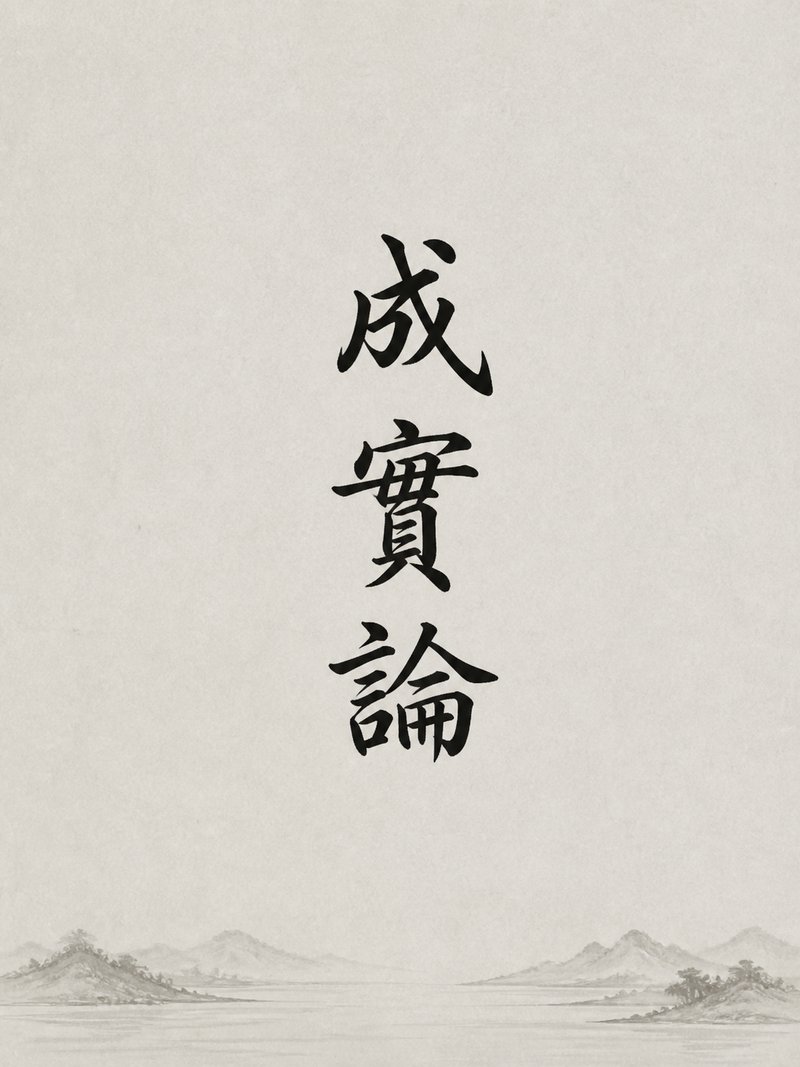 成實論